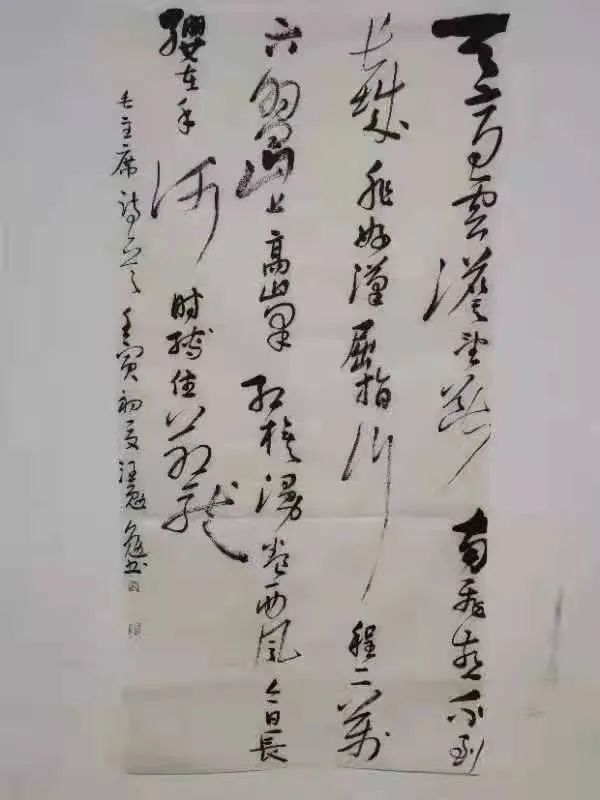 天高雲淡望斷南飛雁不到
长城非好漢屈指行程二萬
六盤山上高峰红旗漫卷西風今日長
纓在手何時缚住蒼龍
毛主席詩一首壬寅初夏汪書